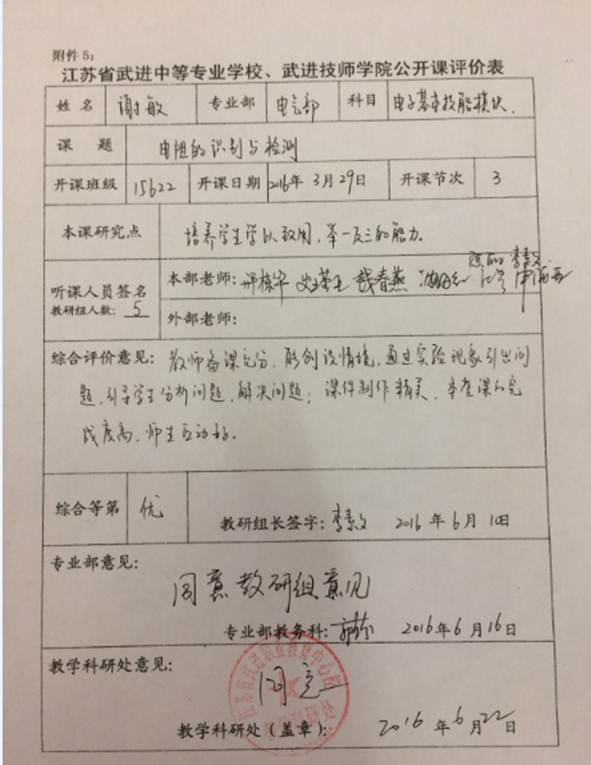 附件5：
江苏省武进中等专业学校、武进技师学院公开课评价表
姓名 谢敏 专业部 电气部 科目 电子基本技能模块
课题 电阻的识别与检测
开课班级 15622 开课日期 2016年3月29日 开课节次 3
本课研究点 培养学生学以致用，举一反三的能力。
听课人员签名 本部老师：
教研组人数：5
外部老师：
综合评价意见：教师备课充分，能创设情境，通过实验现象引出问
题，引导学生分析问题，解决问题；课件制作精美，本堂课的完
成度高，师生互动好。
综合等第 优 教研组长签字： 2016年6月1日
专业部意见：
同意教研组意见
专业部教务科： 2016年6月16日
教学科研处意见：
同意
教学科研处（盖章）： 2016年6月22日